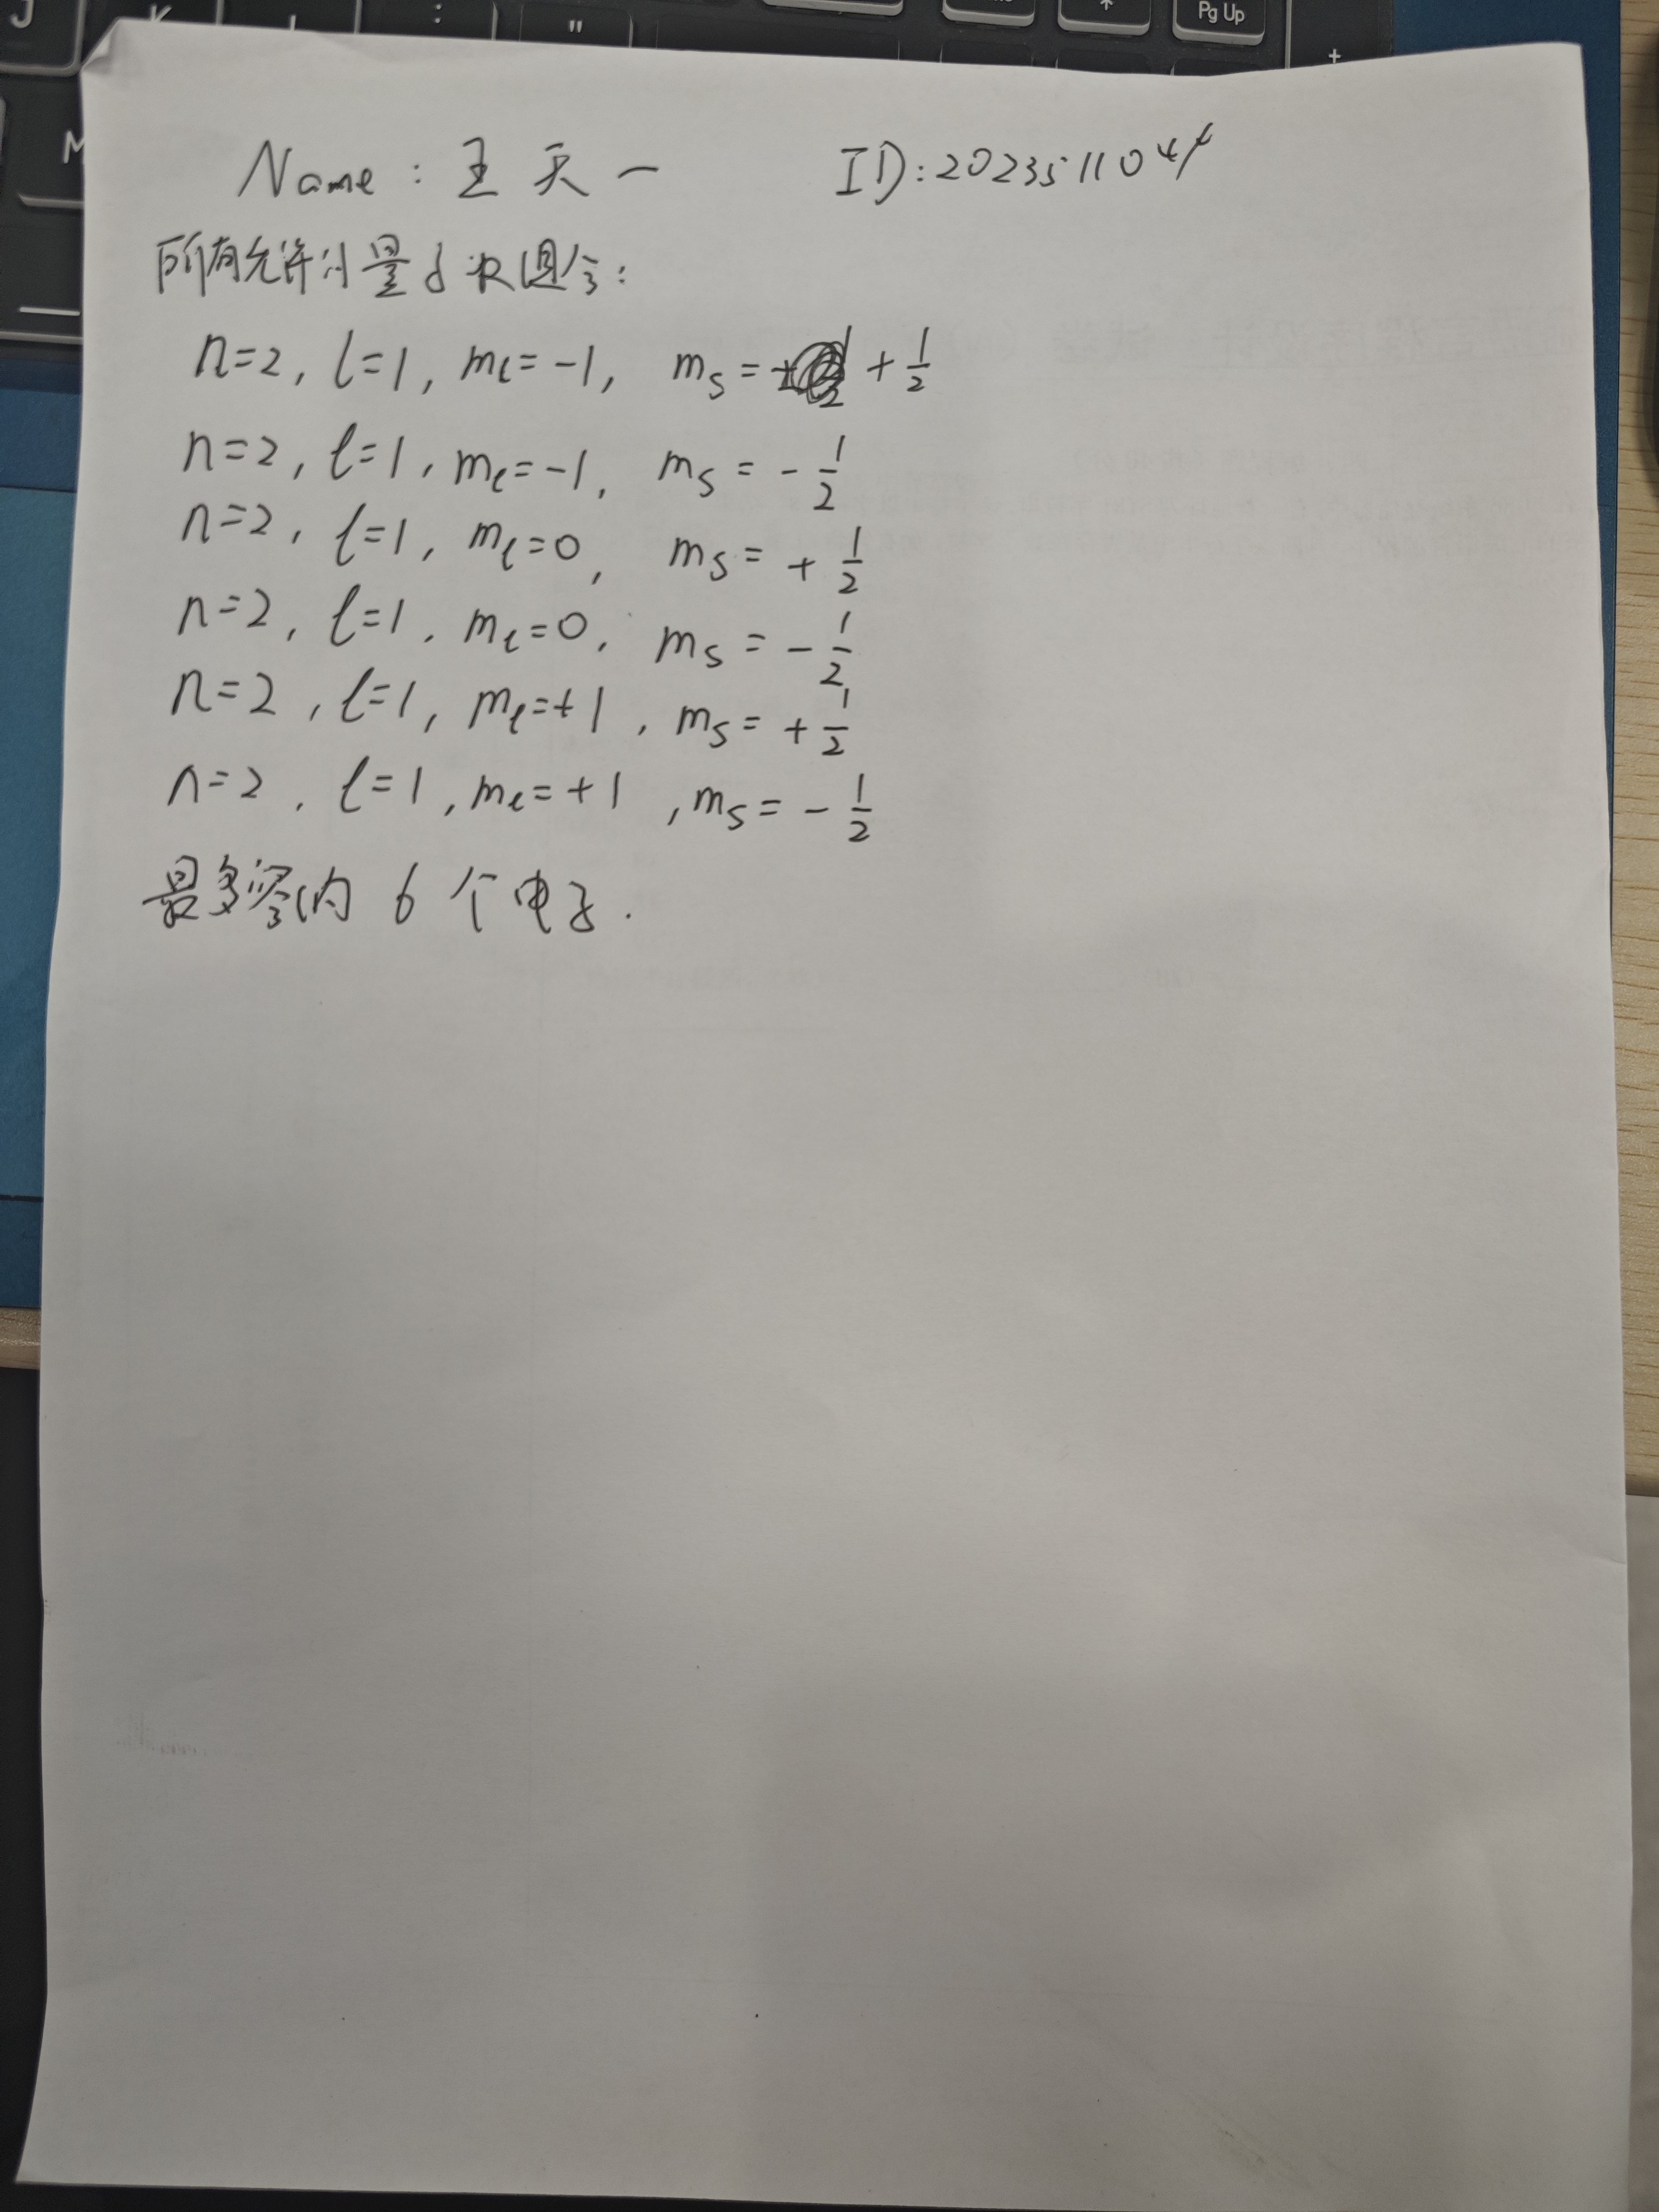 Pg Up
Name: 王天一 ID: 2023511044
所有允许的量子数组合:
n=2, l=1, mₗ=-1, mₛ= +1/2
n=2, l=1, mₗ=-1, mₛ = -1/2
n=2, l=1, mₗ=0, mₛ= +1/2
n=2, l=1, mₗ=0, mₛ = -1/2
n=2, l=1, mₗ=+1, mₛ= +1/2
n=2, l=1, mₗ=+1, mₛ= -1/2
最多容纳 6 个电子.